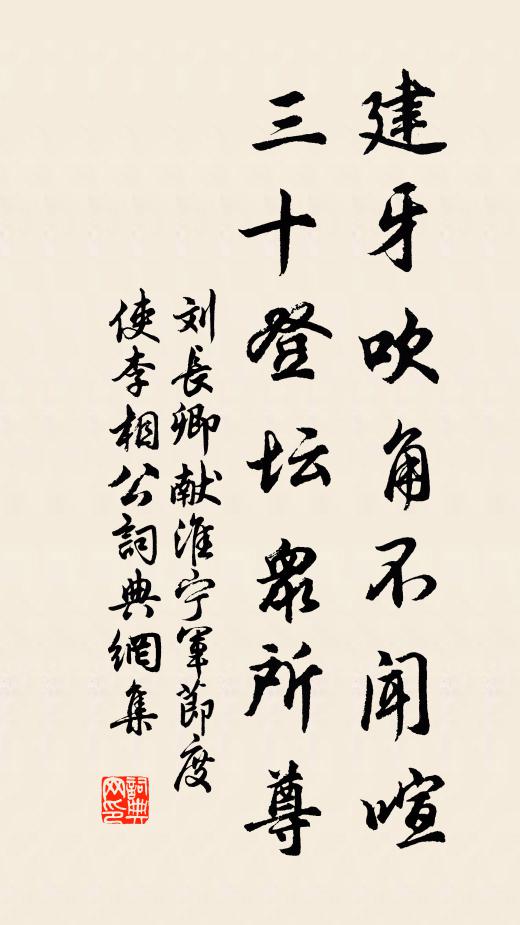 建牙吹角不闻喧
三十登坛衆所尊
刘長卿献淮宁軍節度
使李相公詞典網集
詞典
网印